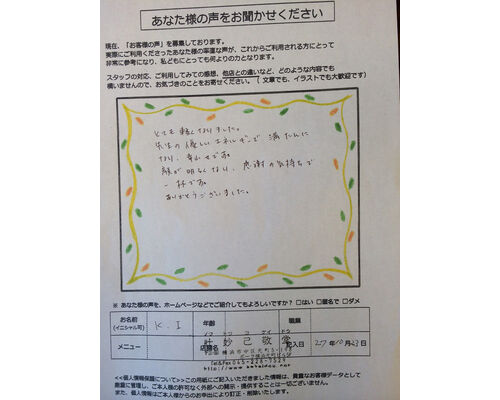 あなた様の声をお聞かせください
現在、「お客様の声」を募集しております。
実際にご利用くださったあなた様の率直な声が、これからご利用される方にとって
非常に参考になり、私どもにとっても何よりの力となります。
スタッフの対応、ご利用してみての感想、他店との違いなど、どのような内容でも
構いませんので、お気づきのことをお寄せください。（文章でも、イラストでも大歓迎です）
とても軽くなりました。
先生の優しいエネルギーで満たんに
なり、幸せです。
顔が明るくなり、感謝の気持ちで
一杯です。
ありがとうございました。
※ あなた様の声を、ホームページなどでご紹介してもよろしいですか？ □はい □匿名で □ダメ
お名前 K.I 年齢 職業
(イニシャル可)
メニュー 店舗名 妙己敬堂 記入日 27年10月23日
横浜市中区元町
Tel&Fax045-228-7529
<<個人情報保護について>>この用紙にご記入いただきました情報は、貴重なお客様データとして
厳重に管理し、ご本人様の許可なく外部への開示・提供することは一切ございません。
また、個人情報はご本人様からのお申出により訂正・削除いたします。